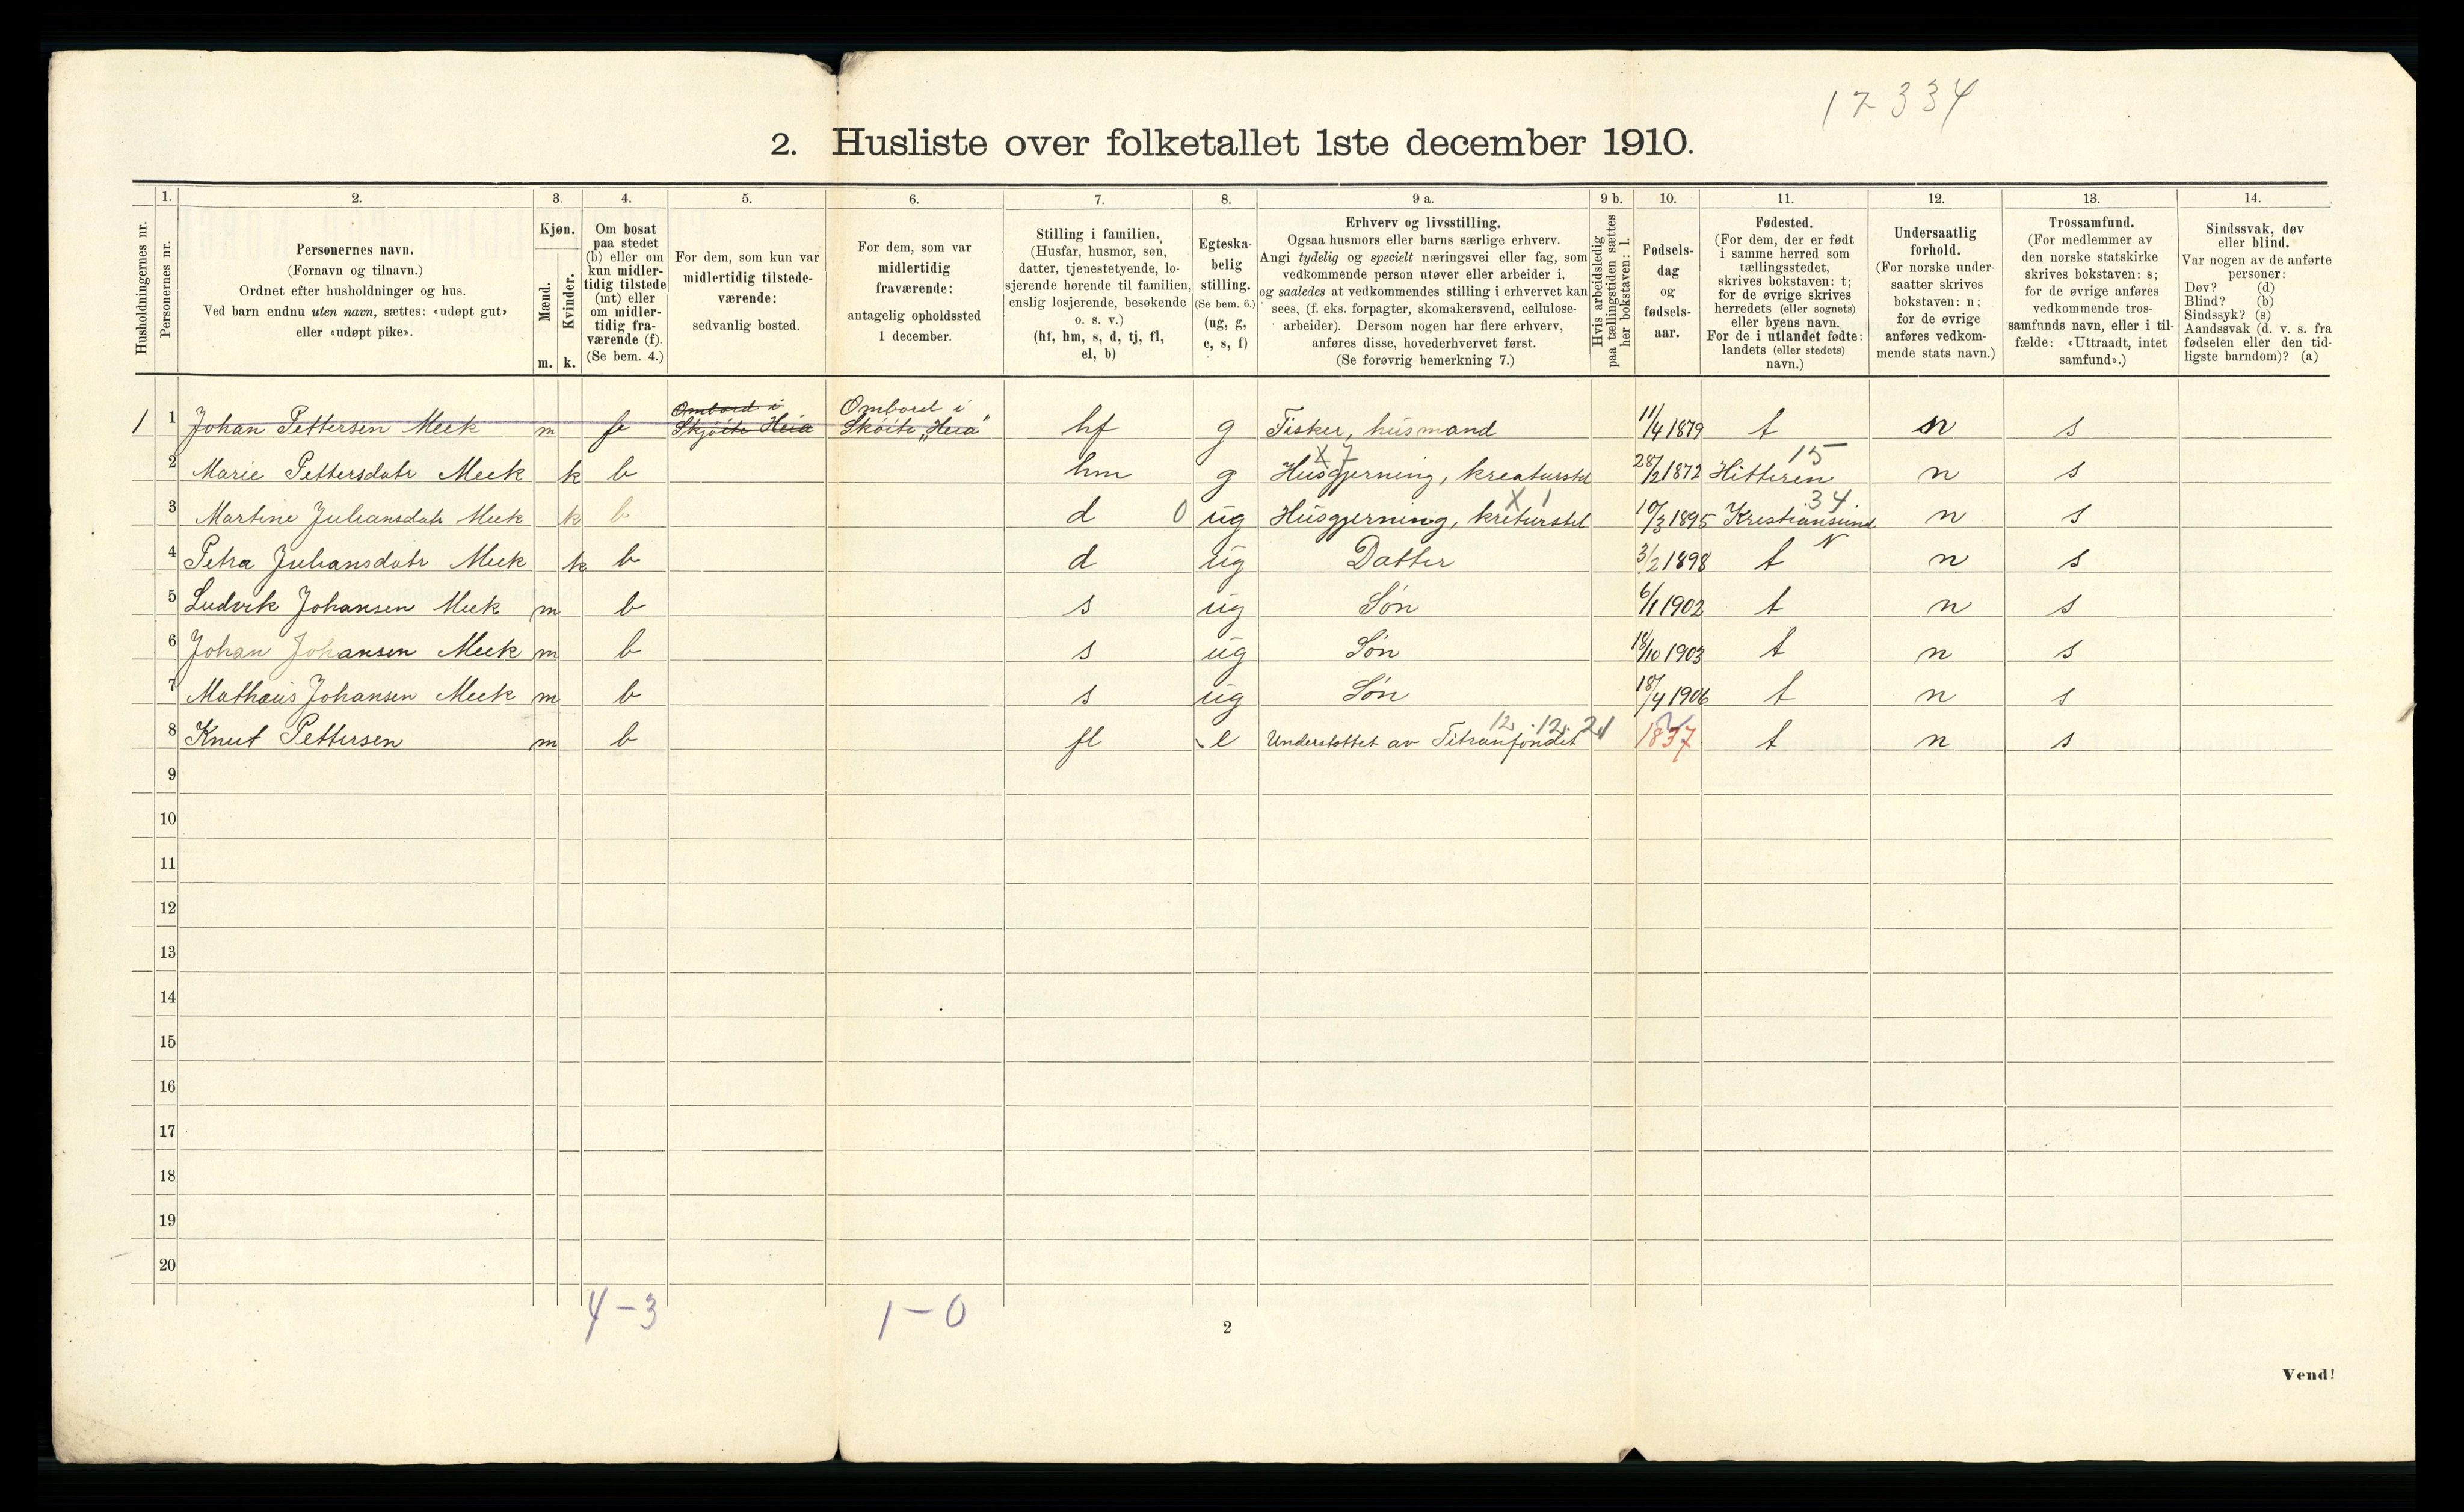 17-334
2. Husliste over folketallet 1ste december 1910.
1. 2. 3. 4. 5. 6. 7. 8. 9 a. 9 b. 10. 11. 12. 13. 14.
Husholdningernes nr.
Personernes nr.
Personernes navn.
(Fornavn og tilnavn.)
Ordnet efter husholdninger og hus.
Ved barn endnu uten navn, sættes: «udøpt gut»
eller «udøpt pike».
Kjøn.
Mænd.
Kvinder.
m. k.
Om bosat
paa stedet
(b) eller om
kun midler-
tidig tilstede
(mt) eller
om midler-
tidig fra-
værende (f).
(Se bem. 4.)
For dem, som kun var
midlertidig tilstede-
værende:
sedvanlig bosted.
For dem, som var
midlertidig
fraværende:
antagelig opholdssted
1 december.
Stilling i familien.
(Husfar, husmor, søn,
datter, tjenestetyende, lo-
sjerende hørende til familien,
enslig losjerende, besøkende
o. s. v.)
(hf, hm, s, d, tj, fl,
el, b)
Egteska-
belig
stilling.
(Se bem. 6.)
(ug, g,
e, s, f)
Erhverv og livsstilling.
Ogsaa husmors eller barns særlige erhverv.
Angi tydelig og specielt næringsvei eller fag, som
vedkommende person utøver eller arbeider i,
og saaledes at vedkommendes stilling i erhvervet kan
sees, (f. eks. forpagter, skomakersvend, cellulose-
arbeider). Dersom nogen har flere erhverv,
anføres disse, hovederhvervet først.
(Se forøvrig bemerkning 7.)
Hvis arbeidsledig
paa tællingstiden sættes
her bokstaven: l.
Fødsels-
dag
og
fødsels-
aar.
Fødested.
(For dem, der er født
i samme herred som
tællingsstedet,
skrives bokstaven: t;
for de øvrige skrives
herredets (eller sognets)
eller byens navn.
For de i utlandet fødte:
landets (eller stedets)
navn.)
Undersaatlig
forhold.
(For norske under-
saatter skrives
bokstaven: n;
for de øvrige
anføres vedkom-
mende stats navn.)
Trossamfund.
(For medlemmer av
den norske statskirke
skrives bokstaven: s;
for de øvrige anføres
vedkommende tros-
samfunds navn, eller i til-
fælde: «Uttraadt, intet
samfund».)
Sindssvak, døv
eller blind.
Var nogen av de anførte
personer:
Døv? (d)
Blind? (b)
Sindssyk? (s)
Aandssvak (d. v. s. fra
fødselen eller den tid-
ligste barndom)? (a)
Ombord i Ombord i
1 1 Johan Pettersen Meek m f Skjöite Heia Sköite "Heia" hf g Fisker, husmand 11/4 1879 t n s
X 7 15
2 Marie Pettersdatr Meek k b hm g Husgjerning, kreaturstel 28/2 1872 Hitteren n s
X 1 34
3 Martine Juliansdatr Meek k b d 0 ug Husgjerning, kreturstel 10/3 1895 Kristiansund n s
N
4 Petra Juliansdatr Meek k b d ug Datter 3/2 1898 t n s
5 Ludvik Johansen Meek m b s ug Søn 6/1 1902 t n s
6 Johan Johansen Meek m b s ug Søn 18/10 1903 t n s
7 Mathæus Johansen Meek m b s ug Søn 18/4 1906 t n s
12.12.21
8 Knut Pettersen m b fl e Understøttet av Titranfondet 1837 t n s
9
10
11
12
13
14
15
16
17
18
19
20
4-3 1-0
2
Vend!